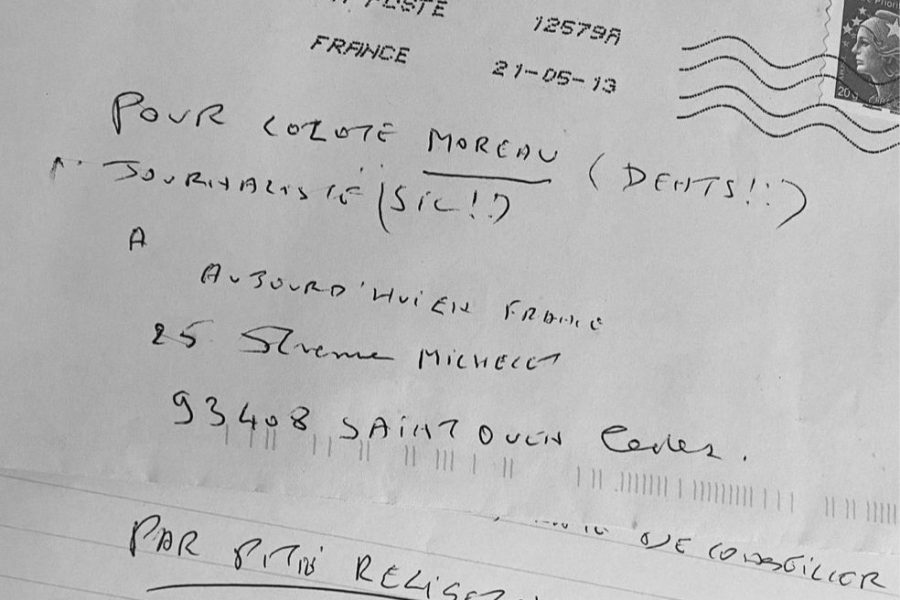 POSTE 12579A
FRANCE 21-05-13
20g
POUR COLOTE MOREAU (DENTS!!)
JOURNALISTE (SIC!!)
A
AUJOURD'HUI EN FRANCE
25 Avenue MICHELET
93408 SAINT OUEN Cedex.
QUE CONSEILLER
PAR PITIÉ RELISEZ